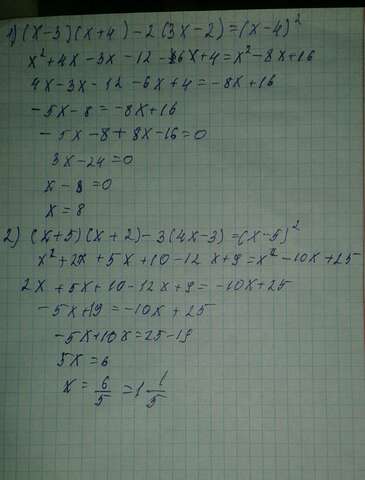 1) (x-3)(x+4)-2(3x-2)=(x-4)²
x²+4x-3x-12-6x+4=x²-8x+16
4x-3x-12-6x+4=-8x+16
-5x-8=-8x+16
-5x-8+8x-16=0
3x-24=0
x-8=0
x=8
2) (x+5)(x+2)-3(4x-3)=(x-5)²
x²+2x+5x+10-12x+9=x²-10x+25
2x+5x+10-12x+9=-10x+25
-5x+19=-10x+25
-5x+10x=25-19
5x=6
x=6/5=1 1/5